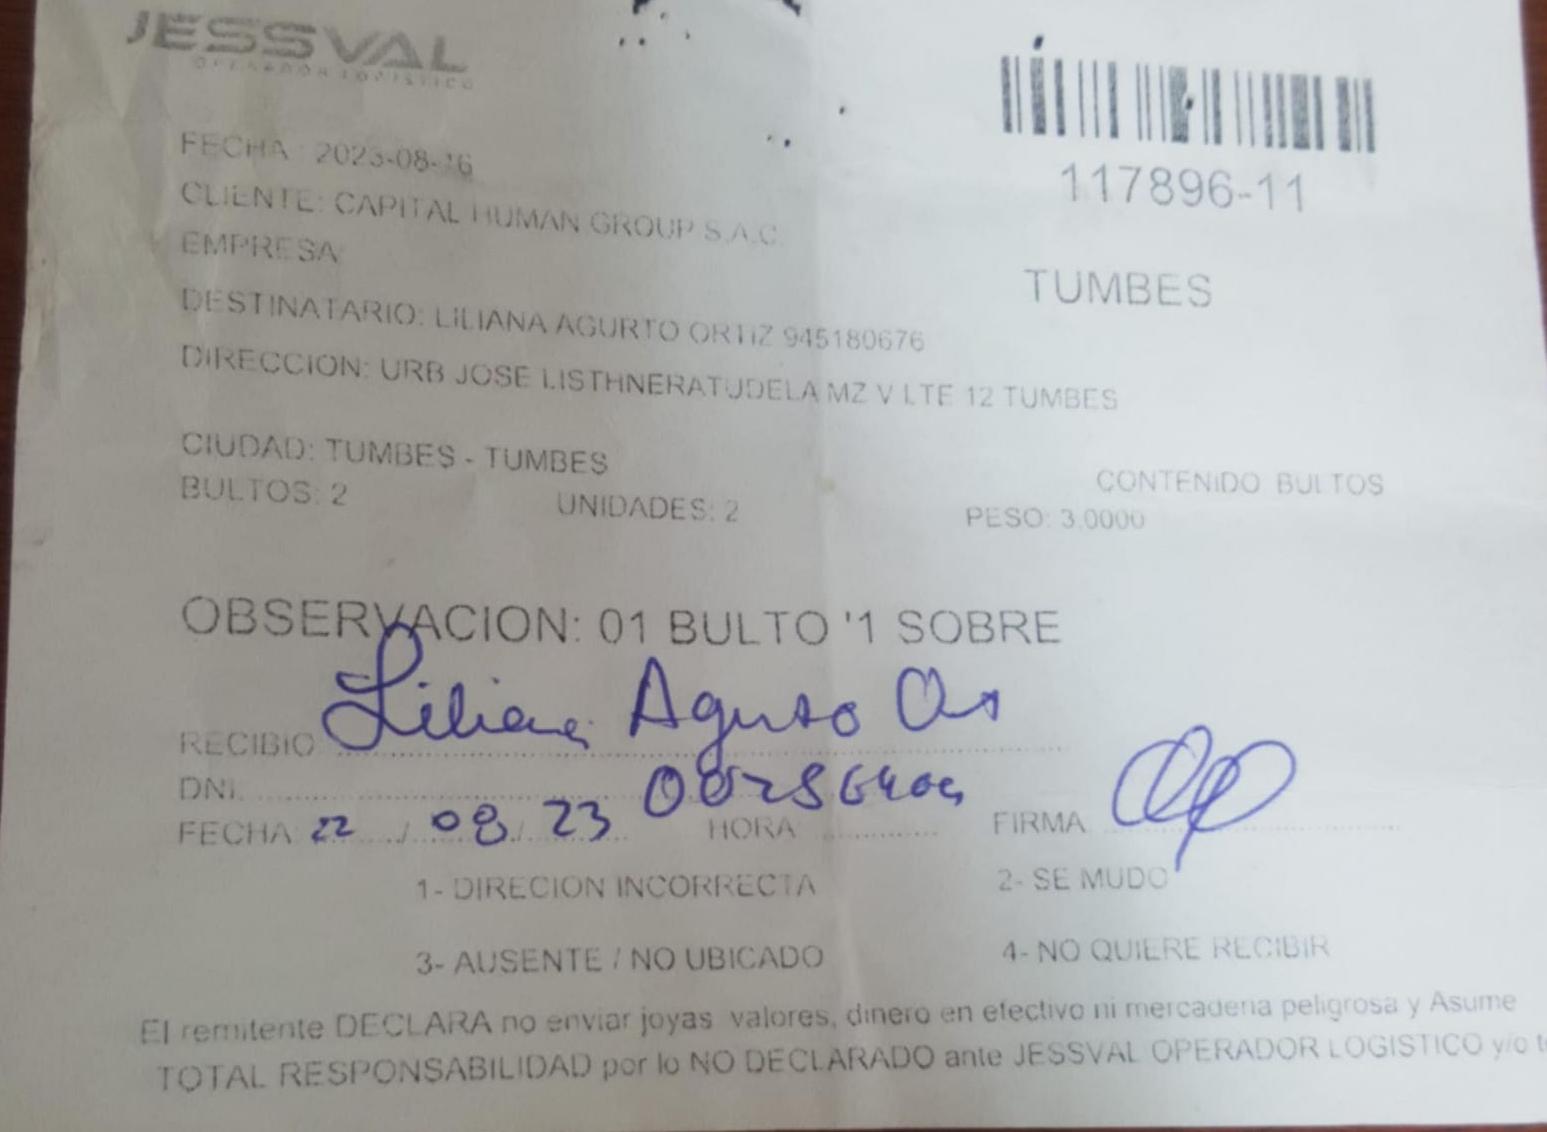 JESSVAL
OPERADOR LOGISTICO
117896-11
FECHA : 2023-08-16
CLIENTE: CAPITAL HUMAN GROUP S.A.C.
EMPRESA
TUMBES
DESTINATARIO: LILIANA AGURTO ORTIZ 945180676
DIRECCION: URB JOSE LISTHNERATUDELA MZ V LTE 12 TUMBES
CIUDAD: TUMBES - TUMBES
CONTENIDO BULTOS
BULTOS: 2 UNIDADES: 2 PESO: 3.0000
OBSERVACION: 01 BULTO '1 SOBRE
RECIBIO Liliana Agurto
DNI.
FECHA 22 / 08 / 23 HORA FIRMA
1- DIRECION INCORRECTA 2- SE MUDO
3- AUSENTE / NO UBICADO 4- NO QUIERE RECIBIR
El remitente DECLARA no enviar joyas valores, dinero en efectivo ni mercaderia peligrosa y Asume
TOTAL RESPONSABILIDAD por lo NO DECLARADO ante JESSVAL OPERADOR LOGISTICO y/o